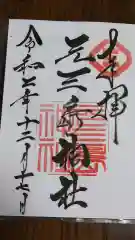 奉拝
元三島神社
令和七年十二月十七日